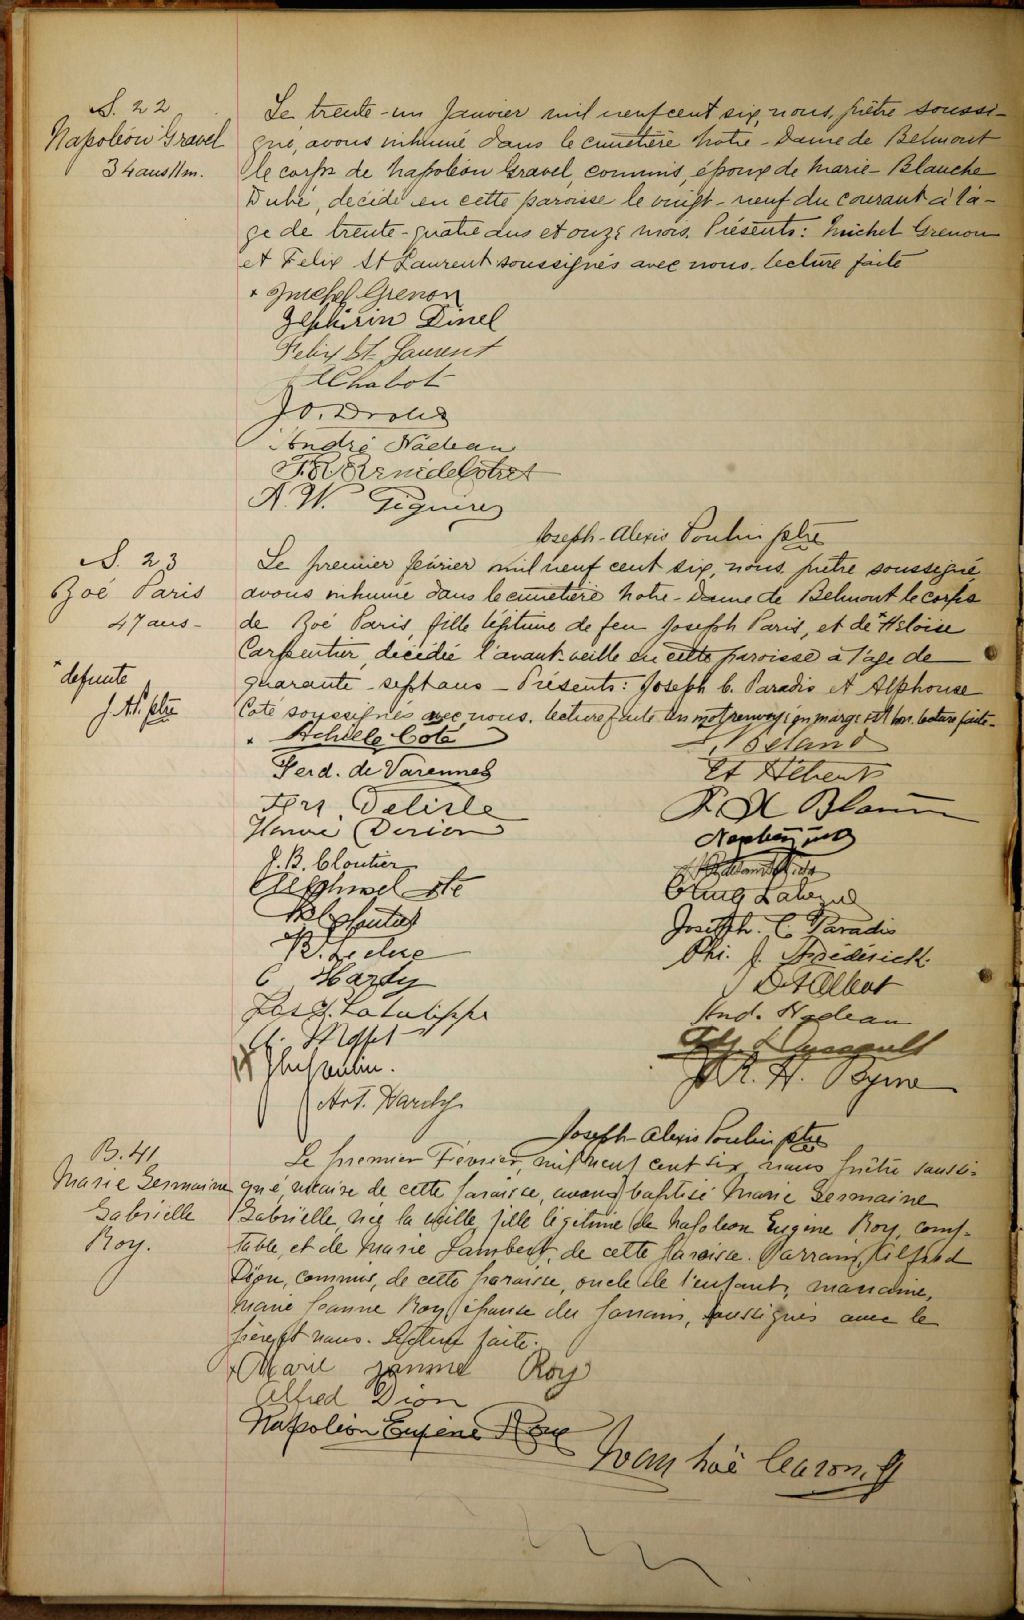 S. 22
Napoléon Gravel
34 ans 11 m.
Le trente-un Janvier mil neuf cent six, nous, prêtre soussi-
gné, avons inhumé dans le cimetière Notre-Dame de Belmont
le corps de Napoléon Gravel, commis, époux de Marie-Blanche
Dubé, décédé en cette paroisse le vingt-neuf du courant à l'â-
ge de trente-quatre ans et onze mois. Présents: Michel Grenon
et Felix St Laurent soussignés avec nous. Lecture faite
x Michel Grenon
Zephirin Dinel
Felix St Laurent
Chabot
J. O. Drolet
André Nadeau
A. W. Giguère
Joseph-Alexis Poulin ptre
S. 23
Zoé Paris
47 ans -
Le premier février mil neuf cent six, nous, prêtre soussigné
avons inhumé dans le cimetière Notre-Dame de Belmont le corps
de Zoé Paris, fille légitime de feu Joseph Paris, et de *Héloïse
Carpentier, décédée l'avant-veille en cette paroisse à l'âge de
quarante-sept ans - Présents: Joseph C. Paradis et Alphonse
Coté soussignés avec nous. Lecture faite. Un mot renvoyé en marge est bon. Lecture faite -
*defunte
J.A.P. ptre
x Achille Coté
Ferd. de Varennes
Delisle
Dorion
J. B. Cloutier
Cloutier
B. Leclerc
C. Hardy
Jos Latulippe
A. Moffet
Jh Poulin.
Art. Hardy
Beland
Et Hébert
Blouin
Joseph. C. Paradis
Phi. J. Frédérick.
D. Albert
And. Nadeau
J. R. H. Byrne
Joseph-Alexis Poulin ptre
B. 41
Marie Germaine
Gabrielle
Roy.
Le premier Février, mil neuf cent six, nous prêtre soussi-
gné, vicaire de cette paroisse, avons baptisé Marie Germaine
Gabrielle, née la veille, fille légitime de Napoléon Eugène Roy, comp-
table, et de Marie Lambert, de cette paroisse. Parrain, Alfred
Dion, commis, de cette paroisse, oncle de l'enfant, marraine,
Marie Jeanne Roy, épouse du parrain, soussignés avec le
père et nous. Lecture faite.
x Marie Jeanne Roy
Alfred Dion
Napoléon Eugène Roy
Ivanhoë Caron, ptre